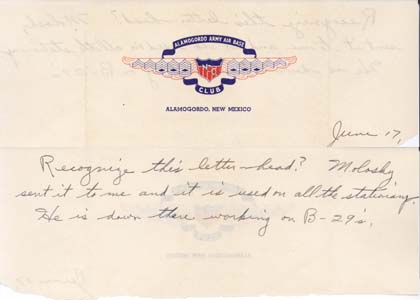 ALAMOGORDO ARMY AIR BASE
CLUB
ALAMOGORDO, NEW MEXICO
June 17,
Recognize this letter-head? Molosky
sent it to me and it is used on all the stationary.
He is down there working on B-29's.